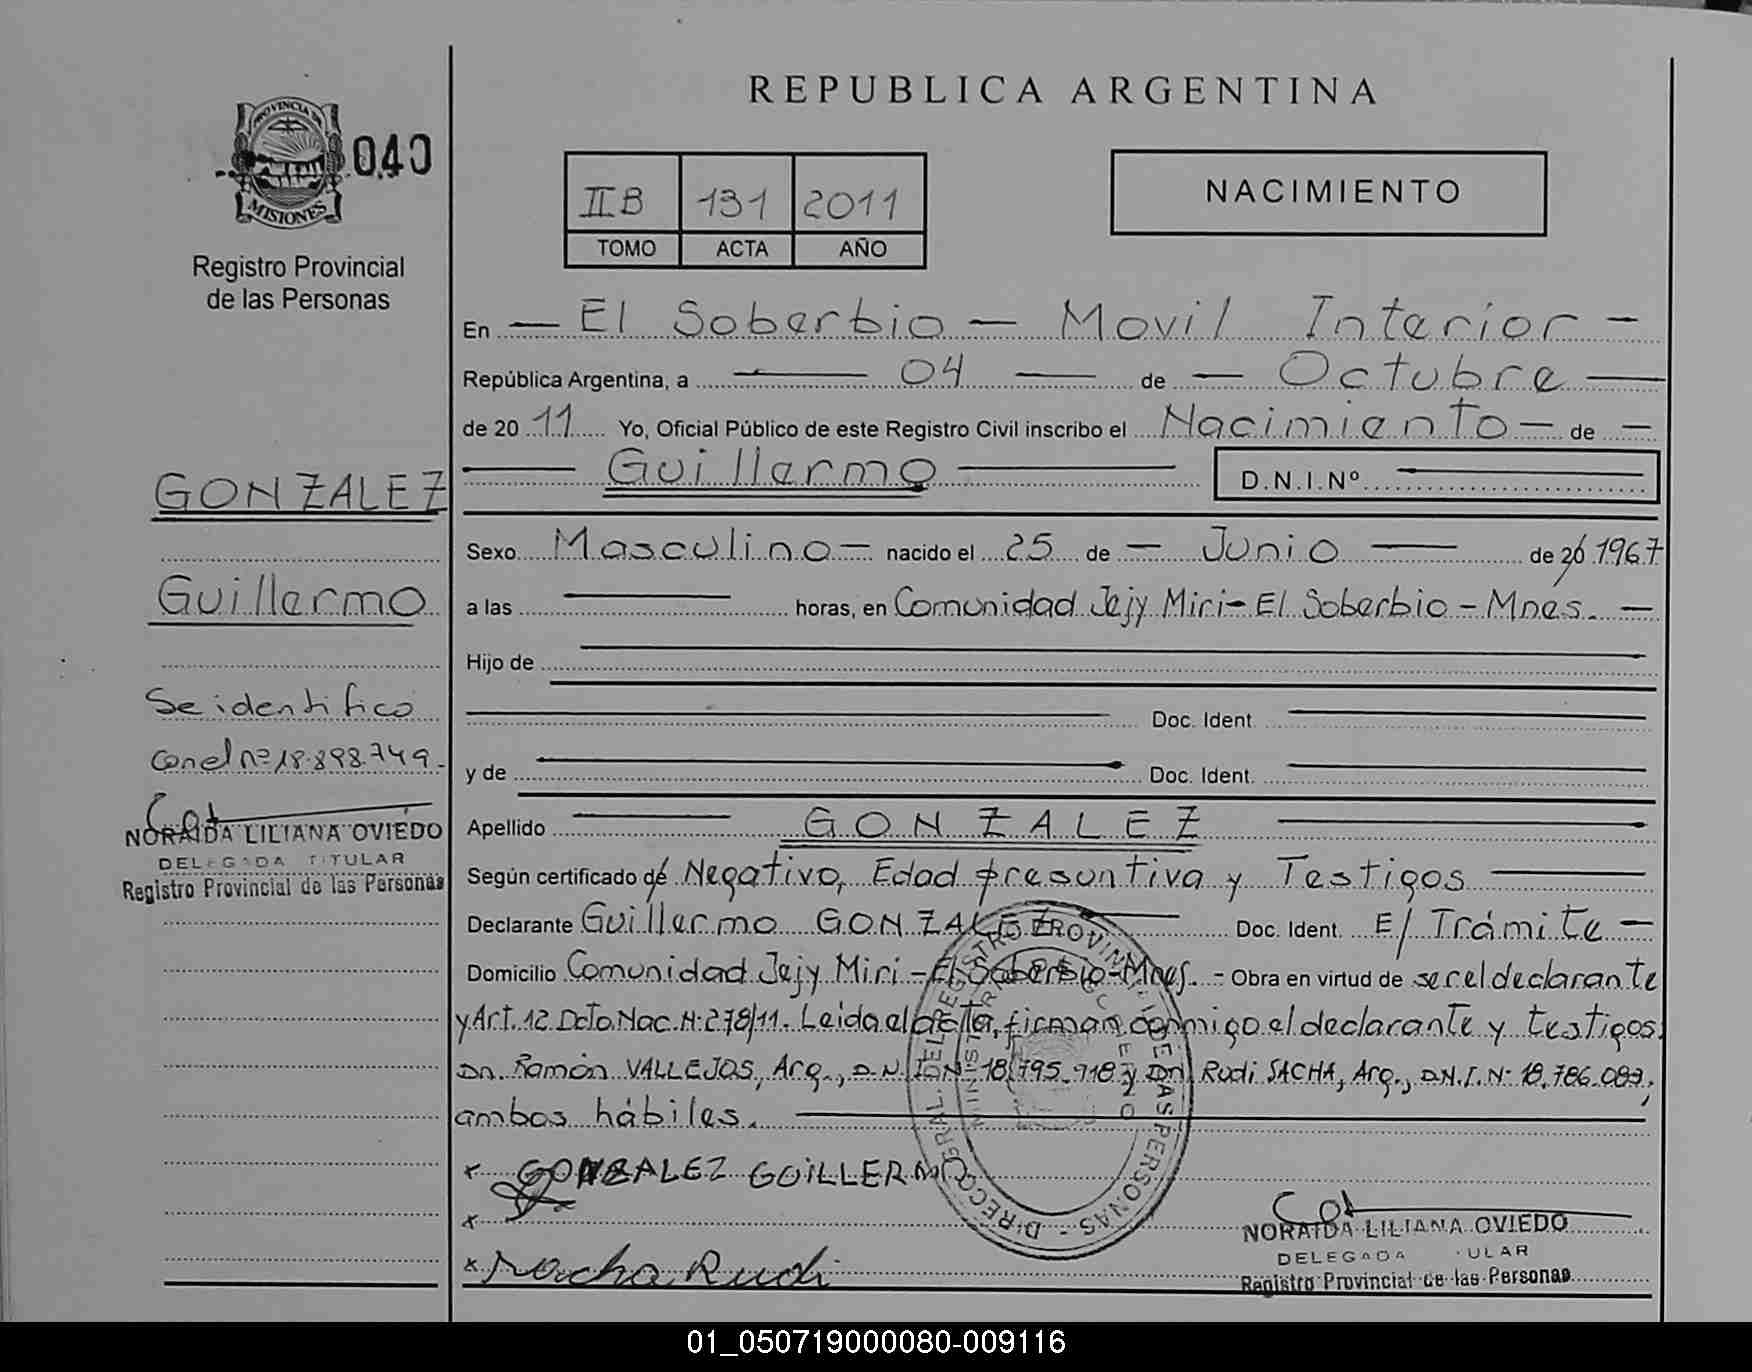 REPUBLICA ARGENTINA
PROVINCIA DE
MISIONES
040
Registro Provincial
de las Personas
II B 131 2011
TOMO ACTA AÑO
NACIMIENTO
En — El Soberbio — Movil Interior —
República Argentina, a — 04 — de — Octubre —
de 2011 Yo, Oficial Público de este Registro Civil inscribo el Nacimiento — de —
— Guillermo — D.N.I.Nº —
Sexo Masculino — nacido el 25 de — Junio — de 20 1967
a las — horas, en Comunidad Jejy Miri - El Soberbio - Mnes. —
Hijo de —
— Doc. Ident. —
y de — Doc. Ident. —
Apellido — GONZALEZ —
Según certificado de Negativo, Edad presuntiva y Testigos —
Declarante Guillermo GONZALEZ — Doc. Ident. E/ Trámite —
Domicilio Comunidad Jejy Miri - El Soberbio - Mnes. - Obra en virtud de ser el declarante
y Art. 12 Dcto. Nac. N: 278/11. Leida el acta, firman conmigo el declarante y testigos
Dn. Ramón VALLEJOS, Arg., D.N.I. N: 18.795.718 y Dn. Rudi SACHA, Arg., D.N.I. N: 18.786.089,
ambos hábiles. —
x GONZALEZ GUILLERMO
x
x Sacha Rudi
NORAIDA LILIANA OVIEDO
DELEGADA TITULAR
Registro Provincial de las Personas
GONZALEZ
Guillermo
Se identifico
con el nº 18.898.749.
NORAIDA LILIANA OVIEDO
DELEGADA TITULAR
Registro Provincial de las Personas
01_050719000080-009116